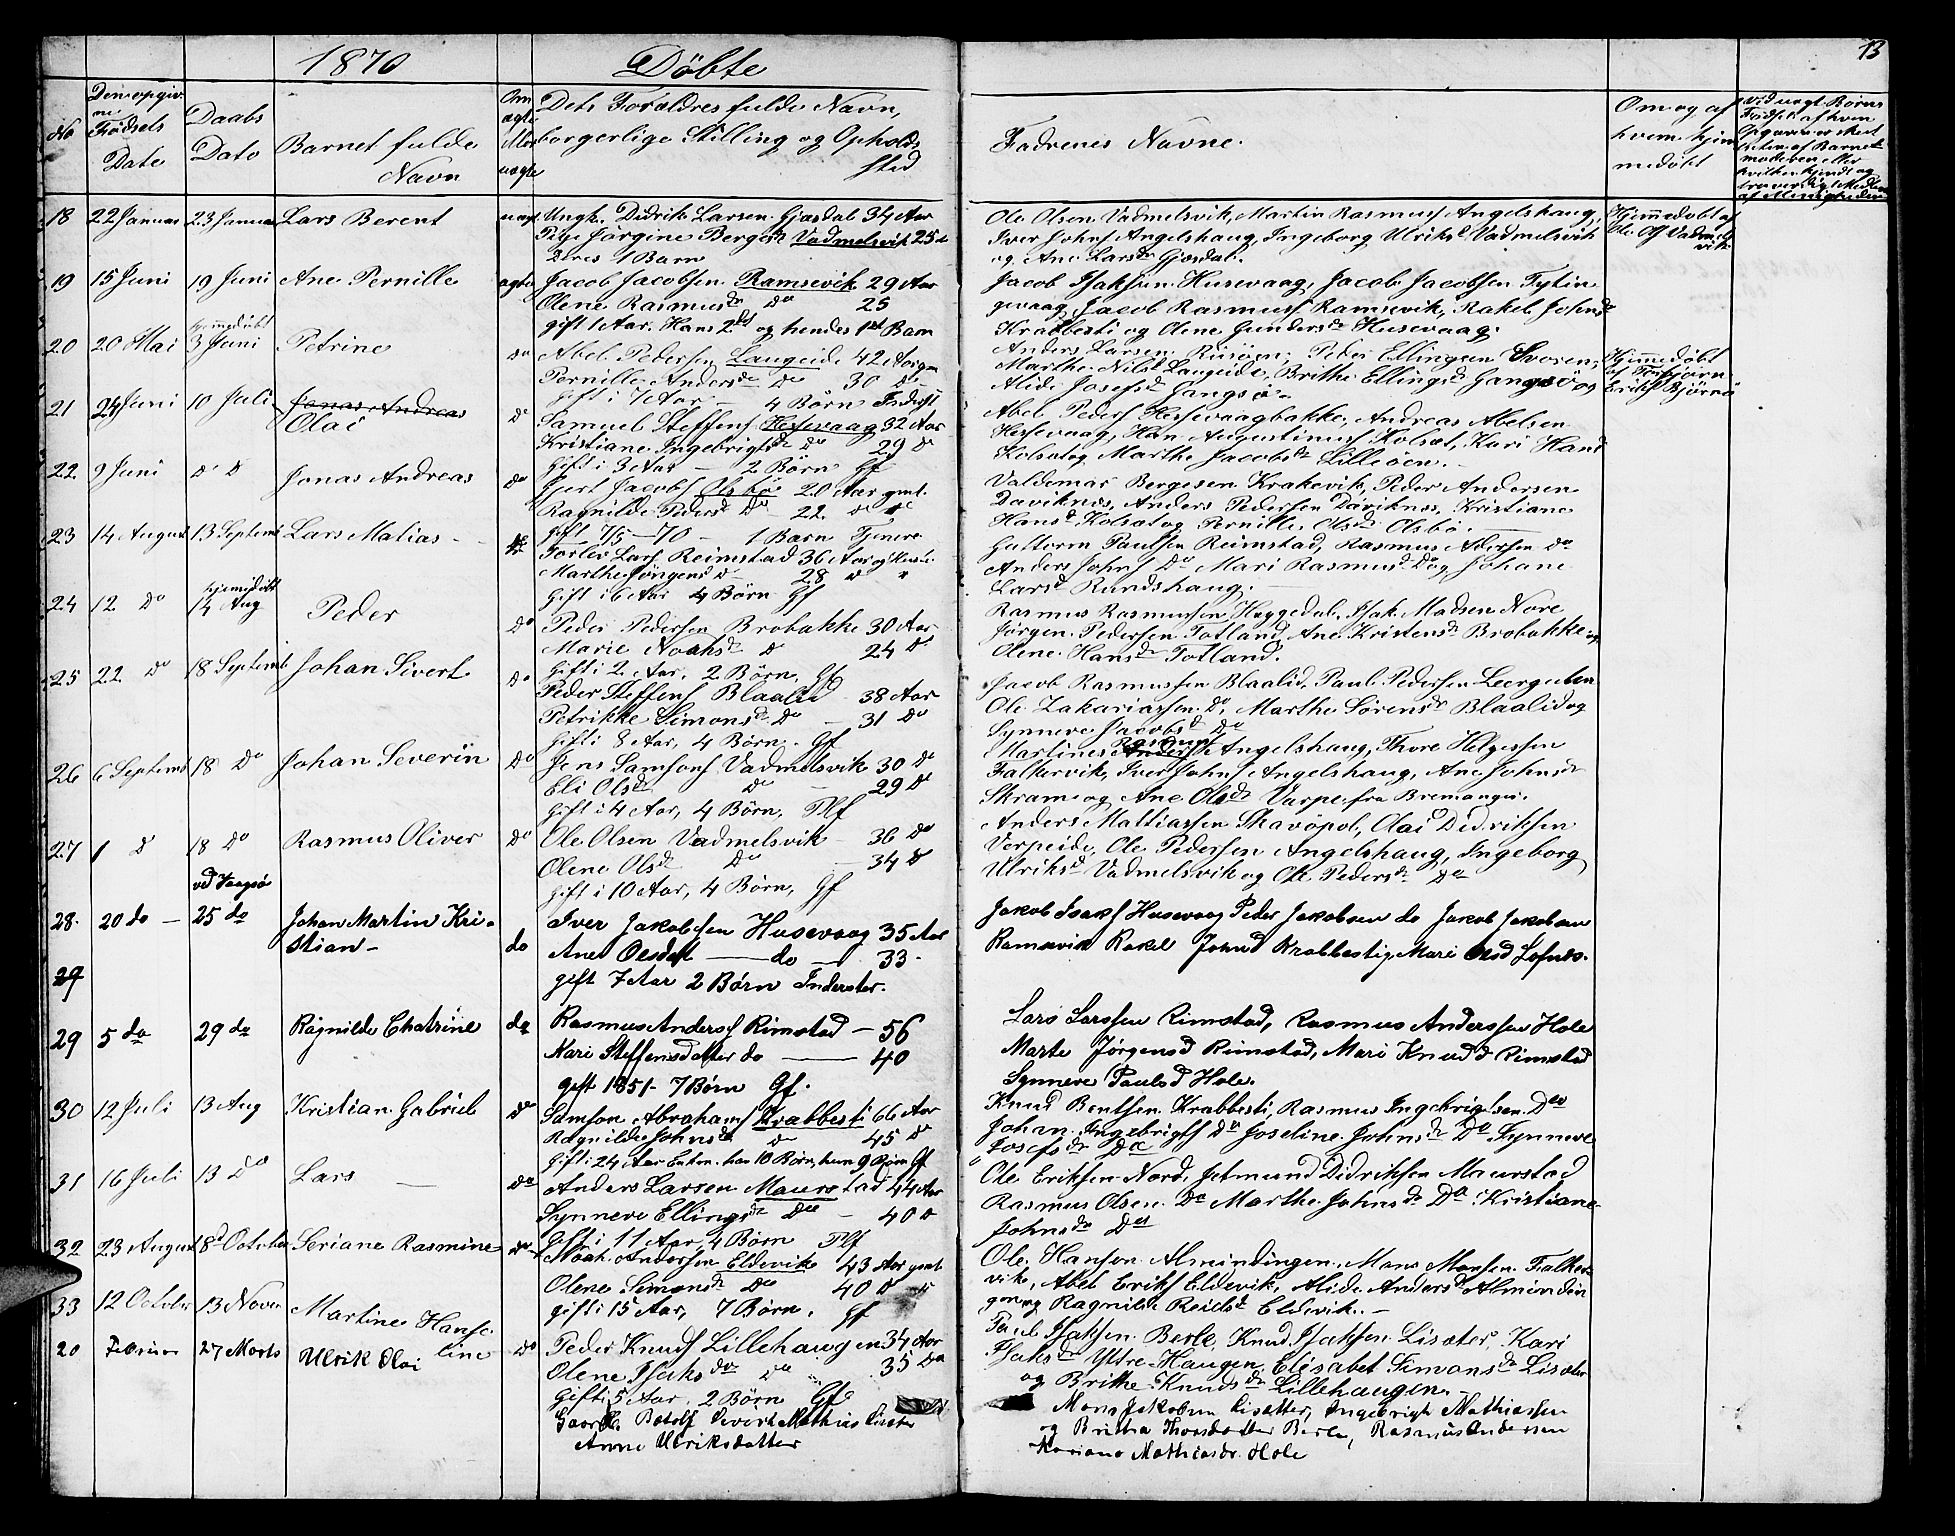 1870 Döbte
13
No
Den opgiv
ne
Födsels
Date
Daabs
Dato
Barnet fulde
Navn
Om
ægte
uægte
Dets Forældres fulde Navn,
borgerlige Stilling og Opholds
sted
Fadrenes Navne.
Om og af
hvem hjem
medöbt
18 22 Januar 23 Januar Lars Berent uægt Ungk. Didrik Larsen Gjærdal 34 Aar
Pige Jörgine Bergesd Vadmelsvik 25
Deres 1 Barn
Ole Olsen Vadmelsvik, Martin Rasmuss Angelshaug,
Iver Johns Angelshaug, Ingeborg Ulriksd Vadmelsvik
og Ane Larsdr Gjærdal.
Hjemmedöbt af
Ole Vadmels
vik
19 15 Juni 19 Juni Ane Pernille ægte Jacob Jacobsen Ramsevik 29 Aar
Olene Rasmusdr Do 25
gift 1 Aar. Hans 2det og hendes 1st Barn
Jacob Isaksen Husevaag, Jacob Jacobsen Fylin
gsvaag, Jacob Rasmuss Ramsevik, Rakel Johnsd
Krabbesti og Olene Gundersdr Husevaag.
20 20 Mai hjemmedöbt
3 Juni Petrine do Abel Pedersen Langeide 42 Aar gm
Pernille Andersdr Do 30 Do
Gift i 7 Aar 4 Börn Inderst
Anders Larsen Risöen, Peder Ellingsen Svoren,
Marthe Nilsd Langeide, Brithe Ellingsdr Gangsö og
Alide Josefsd Gangsö
Hjemmedöbt
af Torbjörn
Eriks Björnö
21 24 Juni 10 Juli Jonas Andreas
Olai Do Samuel Steffens Hessevaag 32 Aar
Kristiane Ingebrigtsdr Do 29 Do
Gift i 3 Aar 2 Börn Gf
Abel Peders Hessevaagbakke, Andreas Abelsen
Hessevaag, Han Augustinus Kolset, Kari Hans
Kolset og Marthe Jacobsdr Lilleöen.
22 9 Juni Do D Jonas Andreas Do Gjert Jacobs Olsbö 20 Aar gmt.
Ragnilde Pedersd Do 22 Do
Gift 7/5 - 70 - 1 Barn Tjenere
Valdemar Bergesen Krakevik, Peder Andersen
Daviknes, Anders Pedersen Daviknes, Kristiane
Hansd Kolset og Pernille Olsdr Olsbö.
23 14 August 13 Septemb Lars Matias Torlev Lars Reimstad 36 Aar og Hustr
Marthe Jörgensd Do 28 Do
Gift i 6 Aar 4 Börn Gf
Guttorm Paulsen Reimstad, Rasmus Do
Anders Johns Do Mari Rasmusd Do og Johane
Larsd Rundshaug.
24 12 Do hjemmedöbt
14 Aug Peder Do Peder Pedersen Brobakke 30 Aar
Marie Noahsdr Do 24 Do
Gift i 2 Aar, 2 Börn, Gf
Rasmus Rasmussen Huggedal, Isak Madsen Nore
Jörgen Pedersen Totland, Ane Kristensdr Brobakke og
Olene Hansdr Totland.
25 22 Do 18 Septemb Johan Sivert Do Peder Steffens Blaalid 38 Aar
Petrikke Simonsdr Do 31 Do
Gift i 8 Aar, 4 Börn. Gf
Jacob Rasmussen Blaalid, Paul Pedersen Leergulen
Ole Zakariassen Do, Marthe Sörensdr Blaalid og
Synneve Jacobsd Do
26 6 Septemb 18 Do Johan Severin Do Jens Samsons Vadmelsvik 30 Do
Eli Olsdr Do 29 Do
Gift i 4 Aar, 4 Börn, Plf
Martines Anders Rasmus Angelshaug, Thore Helgessen
Falkevik, Iver Johns Angelshaug, Ane Johnsdr
Skram og Ane Olsdr Varpe fra Bremanger.
27 1 D 18 Do Rasmus Oliver Do Ole Olsen Vadmelsvik 36 Do
Olene Olsdr Do 34 Do
Gift i 10 Aar, 4 Börn, Gf
Anders Mattiassen Skavöpol, Olai Didriksen
Verpeide, Ole Pedersen Angelshaug, Ingeborg
Ulriksd Vadmelsvik og Ole Pedersdr Do
28. 20 do ved Vaagsö
25 do Johan Martin Kri-
stian do Iver Jakobsen Husevaag 35 Aar
Ane Olesdatt do 33
gift 7 Aar 2 Börn Inderster.
Jakob Isaks Husevaag Peder Jakobsen do Jakob Jakobsen
Ramsevik Rakel Johnsd Krabbestig, Mari Olsd Lofnes.
29
29 5 do 29 do Ragnilde Chatrine do Rasmus Anderss Rimstad 56
Kari Steffensdatter do 40
gift 1851 - 7 Börn Gf.
Lars Larssen Rimstad, Rasmus Anderssen Hole
Marte Jörgensd Rimstad, Mari Knudsd Rimstad
Synneve Paulsd Hole.
30 12 Juli 13 Aug Kristian Gabriel Do Samson Abrahams Krabbesti 66 Aar
Ragnilde Johnsdr Do 45 Do
Gift i 24 Aar Enkm. han 10 Börn, hun 9 Börn Gf
Knud Bentsen Krabbesti, Rasmus Ingebrigtsen Do
Johan Ingebrigts Do Joseline Johnsdr Do Synneve
Josefsdr Do
31 16 Juli 13 Do Lars Do Anders Larsen Maurstad 44 Aar
Synneve Ellingsdr Do 40 D
Gift i 11 Aar, 4 Börn Plf
Ole Eriksen Nord, Jetmund Didriksen Maurstad
Rasmus Olsen Do Marthe Johnsdr Do Kristiane
Johnsdr Do
32 23 August 18d October Seriane Rasmine Do Noah Anderssen Eldevik 43 Aar gmt
Olene Simonsdr Do 40 D
gift i 15 Aar, 7 Börn. Gf
Ole Hansen Almindingen, Mons Monsen Falke
vik, Abel Eriks Eldevik, Alide Andersd Almindin
gen og Ragnilde Reidsd Eldevik.
33 12 October 13 Novem Martine Hanse
line Do Peder Knuds Lillehaugen 34 Aar
Olene Isaksdr Do 35 Do
Gift i 5 Aar. 2 Börn Gf
Paul Isaksen Berle, Knud Isaksen Lisæter, Kari
Isaksdr Ytre-Haugen, Elisabet Simonsdr Lisæter
og Brithe Knudsdr Lillehaugen
20 Februar 27 Marts Ulrik Olai
Gaardb. Botolf Sivert Mathias Liseter
Anne Ulriksdatter
Mons Jakobsen Lisetter, Ingebrigt Mathiassen
og Britha Thorsdatter Berle, Rasmus Andersen
Mariane Mathiasdr. Hole